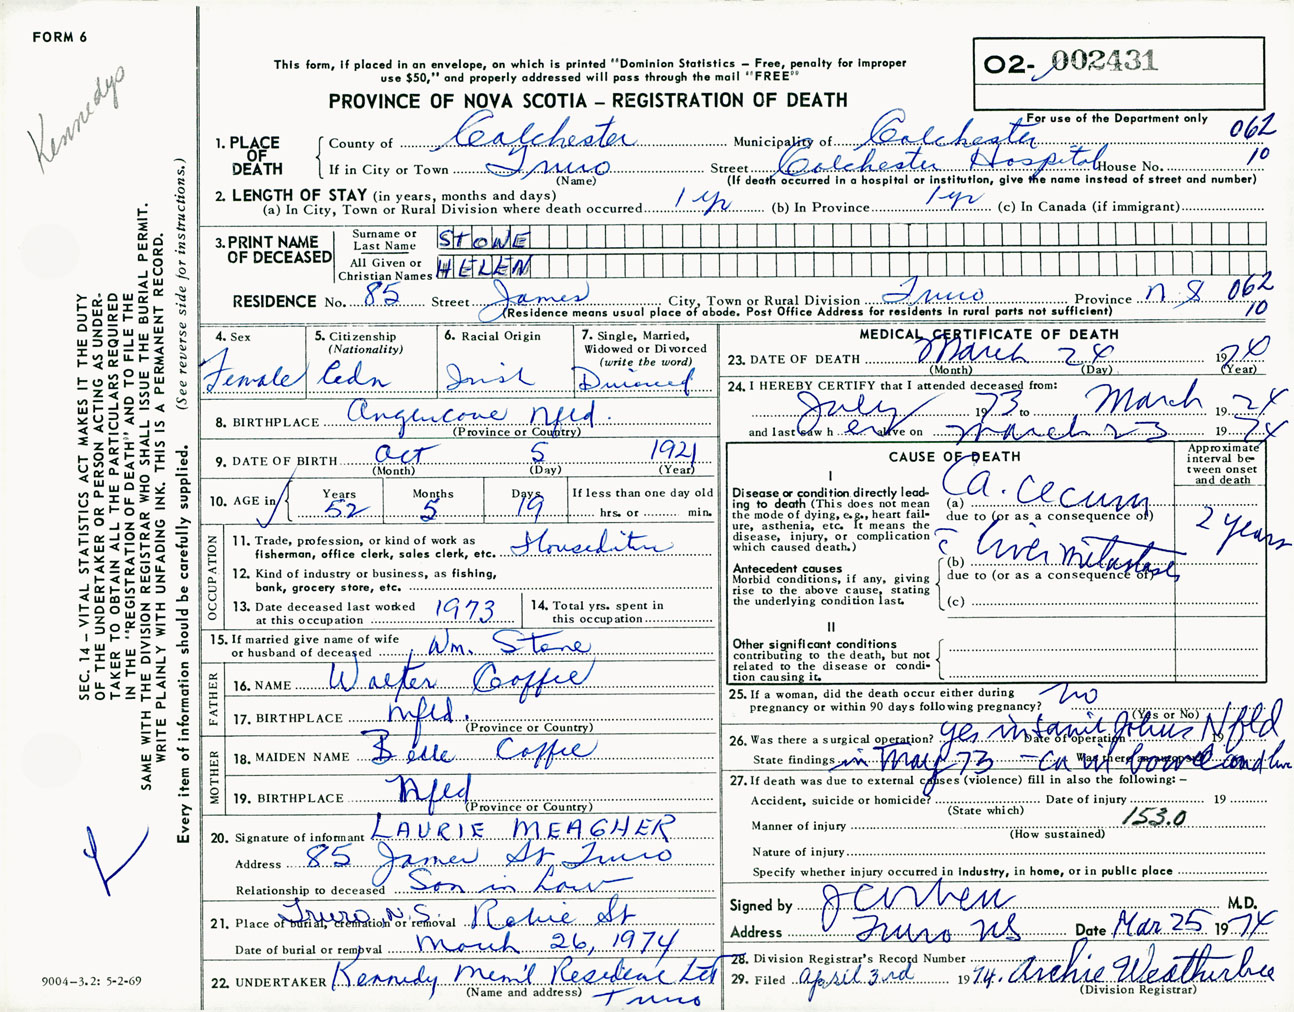 FORM 6
Kennedys
This form, if placed in an envelope, on which is printed "Dominion Statistics – Free, penalty for improper
use $50," and properly addressed will pass through the mail "FREE"
PROVINCE OF NOVA SCOTIA – REGISTRATION OF DEATH
02- 002431
For use of the Department only
062
10
1. PLACE OF DEATH
County of Colchester Municipality of Colchester
If in City or Town Truro Street Colchester Hospital House No.
(Name) (If death occurred in a hospital or institution, give the name instead of street and number)
2. LENGTH OF STAY (in years, months and days)
(a) In City, Town or Rural Division where death occurred 1 yr (b) In Province 1 yr (c) In Canada (if immigrant)
3. PRINT NAME OF DECEASED
Surname or Last Name STONE
All Given or Christian Names HELEN
RESIDENCE No. 85 Street James City, Town or Rural Division Truro Province N S 062
10
(Residence means usual place of abode. Post Office Address for residents in rural parts not sufficient)
4. Sex
Female
5. Citizenship
(Nationality)
Cdn
6. Racial Origin
Irish
7. Single, Married,
Widowed or Divorced
(write the word)
Divorced
8. BIRTHPLACE Nfld.
(Province or Country)
9. DATE OF BIRTH Oct 5 1921
(Month) (Day) (Year)
10. AGE in
Years Months Days If less than one day old
52 5 19 hrs. or min.
OCCUPATION
11. Trade, profession, or kind of work as
fisherman, office clerk, sales clerk, etc.
12. Kind of industry or business, as fishing,
bank, grocery store, etc.
13. Date deceased last worked
at this occupation 1973
14. Total yrs. spent in
this occupation
15. If married give name of wife
or husband of deceased Wm. Stone
FATHER
16. NAME Walter Coffie
17. BIRTHPLACE Nfld.
(Province or Country)
MOTHER
18. MAIDEN NAME Coffie
19. BIRTHPLACE Nfld
(Province or Country)
20. Signature of informant LAURIE MEAGHER
Address 85 James St Truro
Relationship to deceased Son in Law
21. Place of burial, cremation or removal Truro, N.S. Robie St
Date of burial or removal March 26, 1974
22. UNDERTAKER Kennedy Mem'l Residence Ltd
(Name and address) Truro
MEDICAL CERTIFICATE OF DEATH
23. DATE OF DEATH March 24 1974
(Month) (Day) (Year)
24. I HEREBY CERTIFY that I attended deceased from:
July 1973 to March 1974
and last saw her alive on March 23 1974
CAUSE OF DEATH
Approximate
interval be-
tween onset
and death
I
Disease or condition directly lead-
ing to death (This does not mean
the mode of dying, e.g., heart fail-
ure, asthenia, etc. It means the
disease, injury, or complication
which caused death.)
(a) Ca. cecum
due to (or as a consequence of)
2 years
Antecedent causes
Morbid conditions, if any, giving
rise to the above cause, stating
the underlying condition last.
(b) c̄ liver metastases
due to (or as a consequence of)
(c)
II
Other significant conditions
contributing to the death, but not
related to the disease or condi-
tion causing it.
25. If a woman, did the death occur either during
pregnancy or within 90 days following pregnancy? no
(Yes or No)
26. Was there a surgical operation? yes in Saint Johns Nfld Date of operation 19
State findings in May 73 - ca of bowel and liver
27. If death was due to external causes (violence) fill in also the following: –
Accident, suicide or homicide? Date of injury 19
(State which)
Manner of injury 153.0
(How sustained)
Nature of injury
Specify whether injury occurred in industry, in home, or in public place
Signed by M.D.
Address Truro NS Date Mar 25 1974
28. Division Registrar's Record Number
29. Filed April 3rd 1974. Archie Weatherbee
(Division Registrar)
SEC. 14 – VITAL STATISTICS ACT MAKES IT THE DUTY
OF THE UNDERTAKER OR PERSON ACTING AS UNDER-
TAKER TO OBTAIN ALL THE PARTICULARS REQUIRED
IN THE "REGISTRATION OF DEATH" AND TO FILE THE
SAME WITH THE DIVISION REGISTRAR WHO SHALL ISSUE THE BURIAL PERMIT.
WRITE PLAINLY WITH UNFADING INK. THIS IS A PERMANENT RECORD.
Every item of information should be carefully supplied. (See reverse side for instructions.)
9004–3.2: 5-2-69